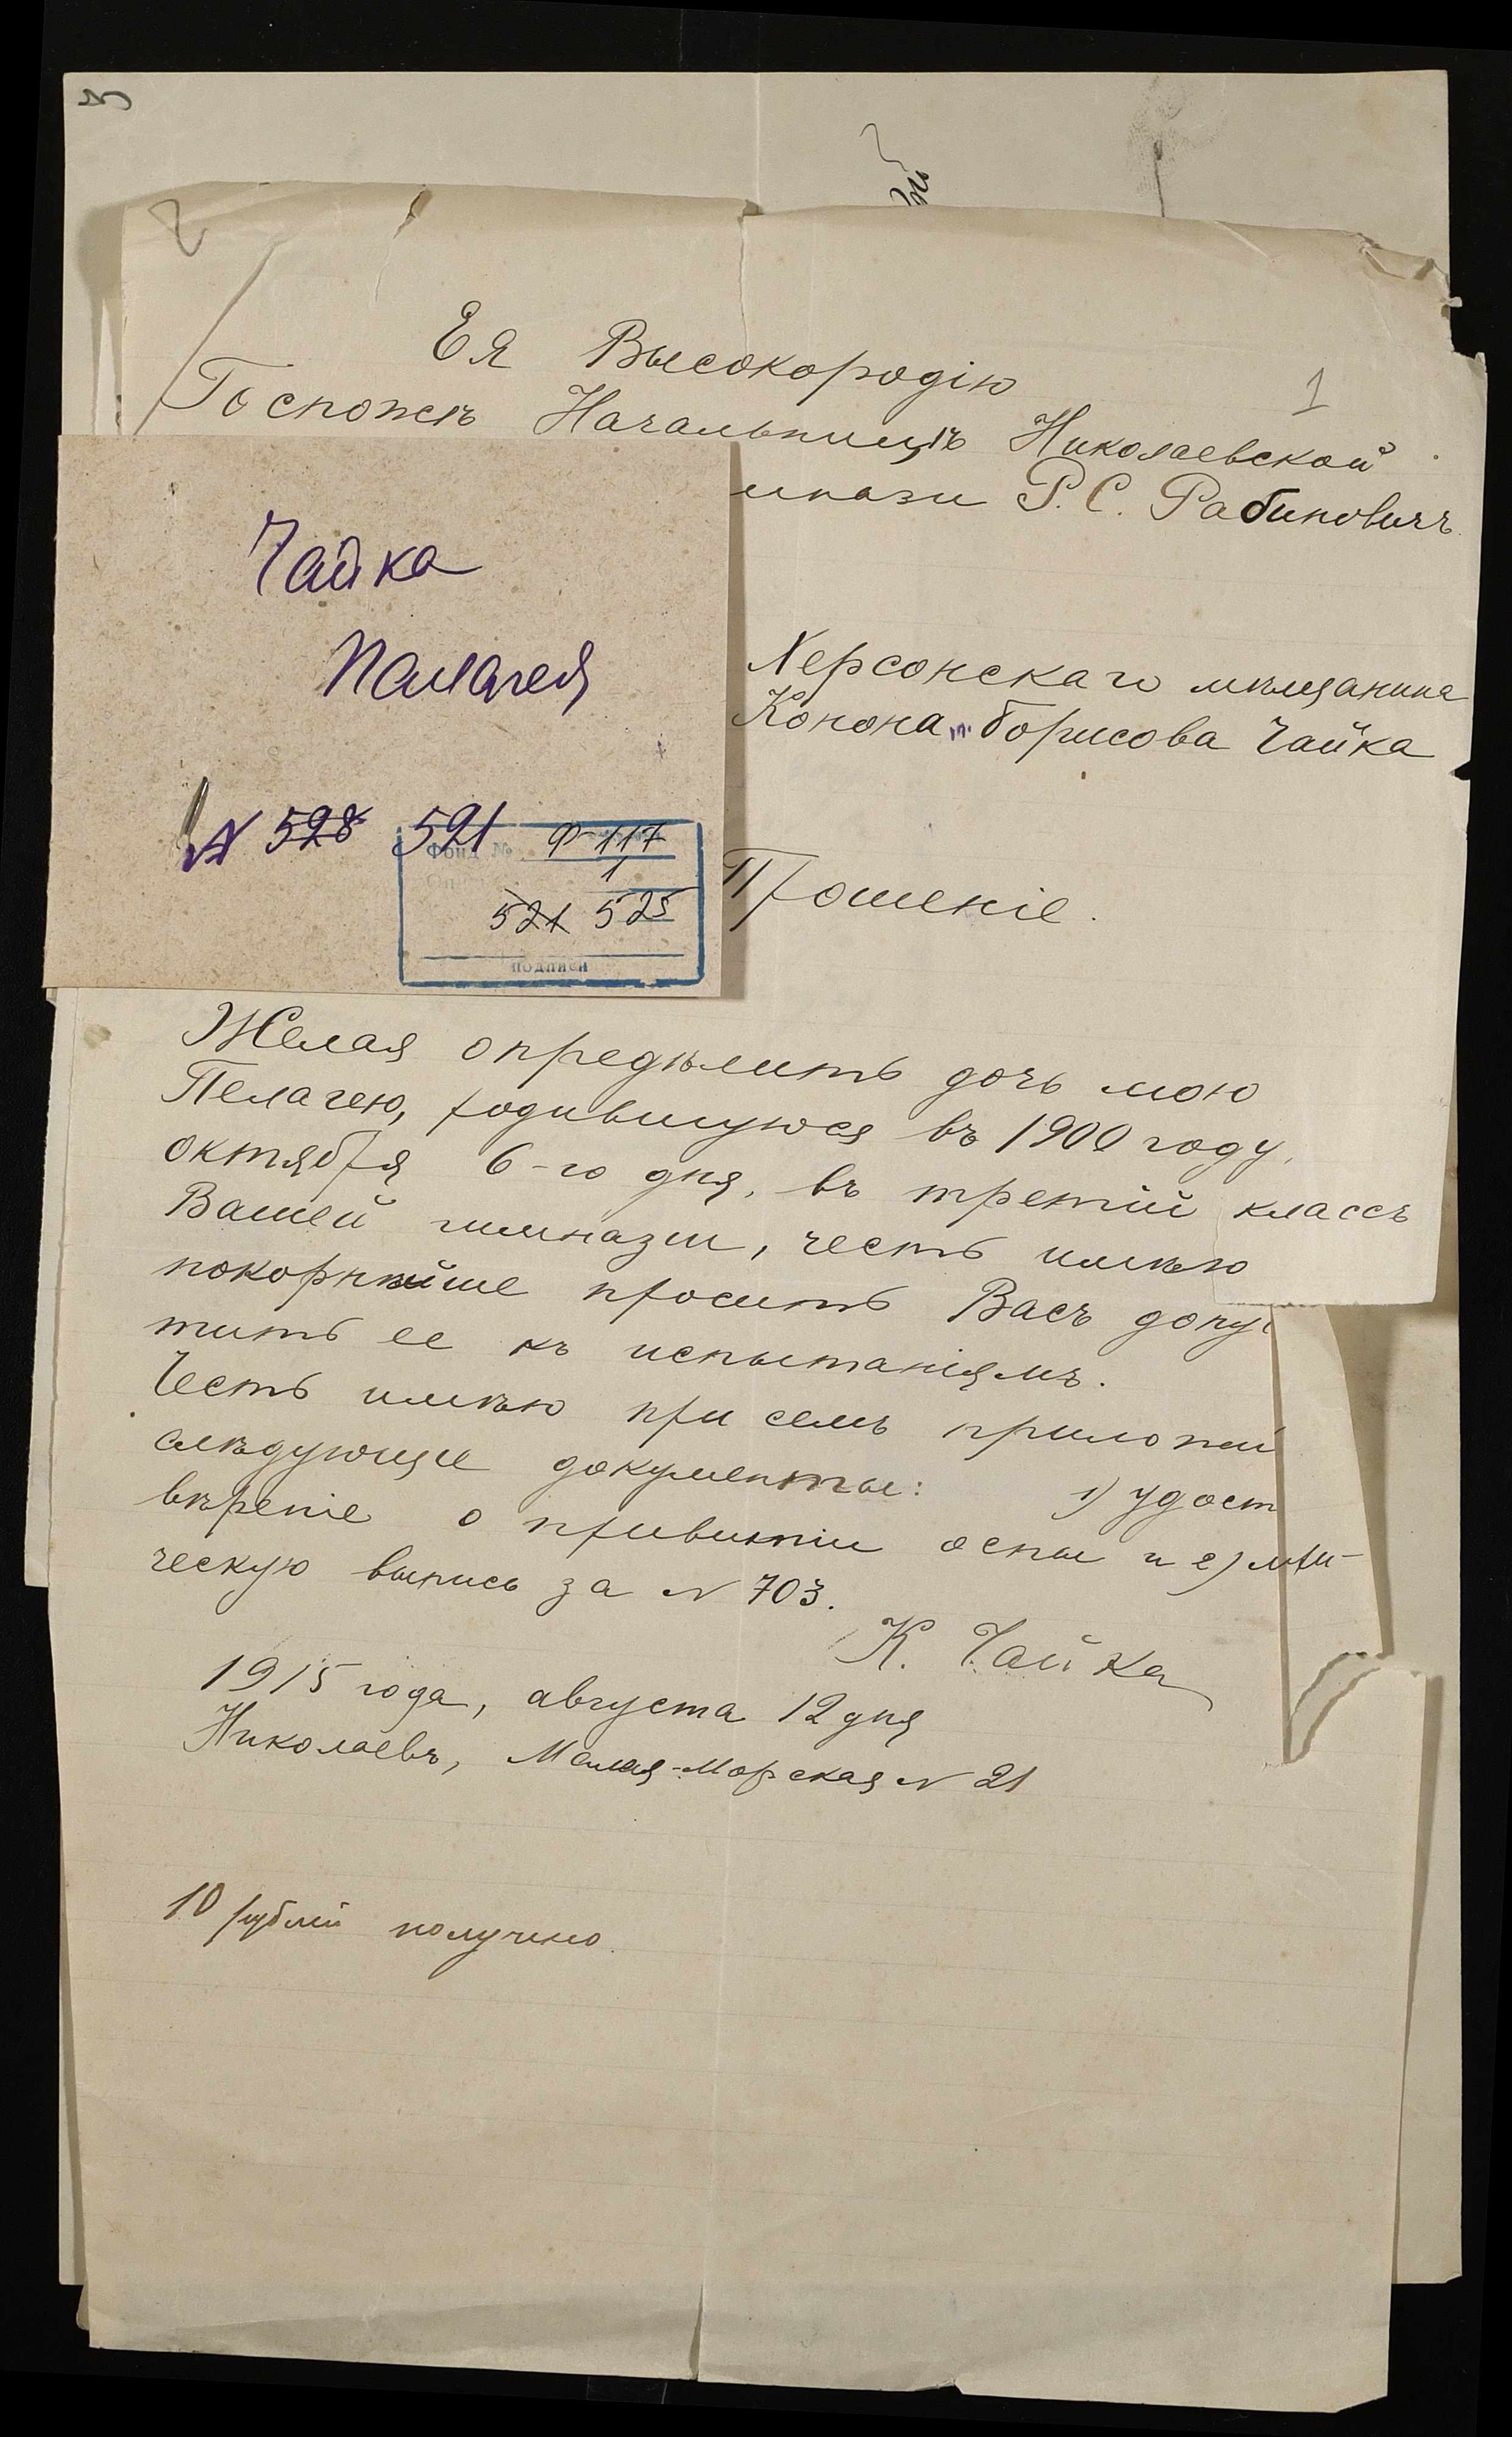 3
2
Ея Высокородію
1
Госпожѣ Начальницѣ Николаевской
мназіи Р. С. Рабиновичъ.
Чайка
Палагея
Херсонскаго мѣщанина
Конона Борисова Чайка
N 528 521
Фонд № Ф-117
1
521 525
подписи
Прошеніе.
Желая опредѣлить дочь мою
Пелагею, родившуюся въ 1900 году,
октября 6-го дня, въ третій классъ
Вашей гимназіи, честь имѣю
покорнѣйше просить Васъ допу
тить ее къ испытаніямъ.
Честь имѣю при семъ приложи
слѣдующіе документы: 1) удост
вѣреніе о привитіи оспы и 2) метри-
ческую выпись за N 703.
К. Чайка
1915 года, августа 12 дня
Николаевъ, Малая-Морская N 21
10 рублей получено.